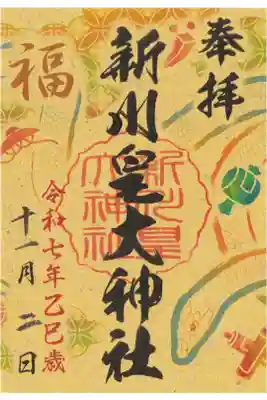 奉拝
新川皇大神社
福
令和七年乙巳歳
十一月二日
新川皇
大神社